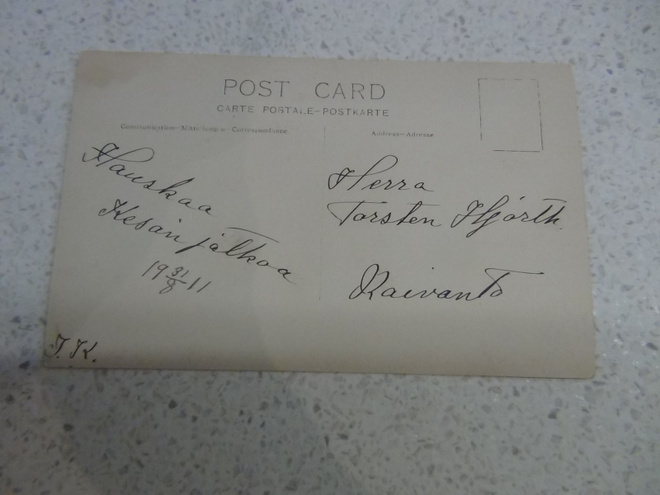 POST CARD
CARTE POSTALE-POSTKARTE
Communication- Mitteilung - Correspondence
Address-Adresse
Hauskaa
Kesän jatkoa
19 31/8 11
J.K.
Herra
Torsten Hjorth.
Kaivanto